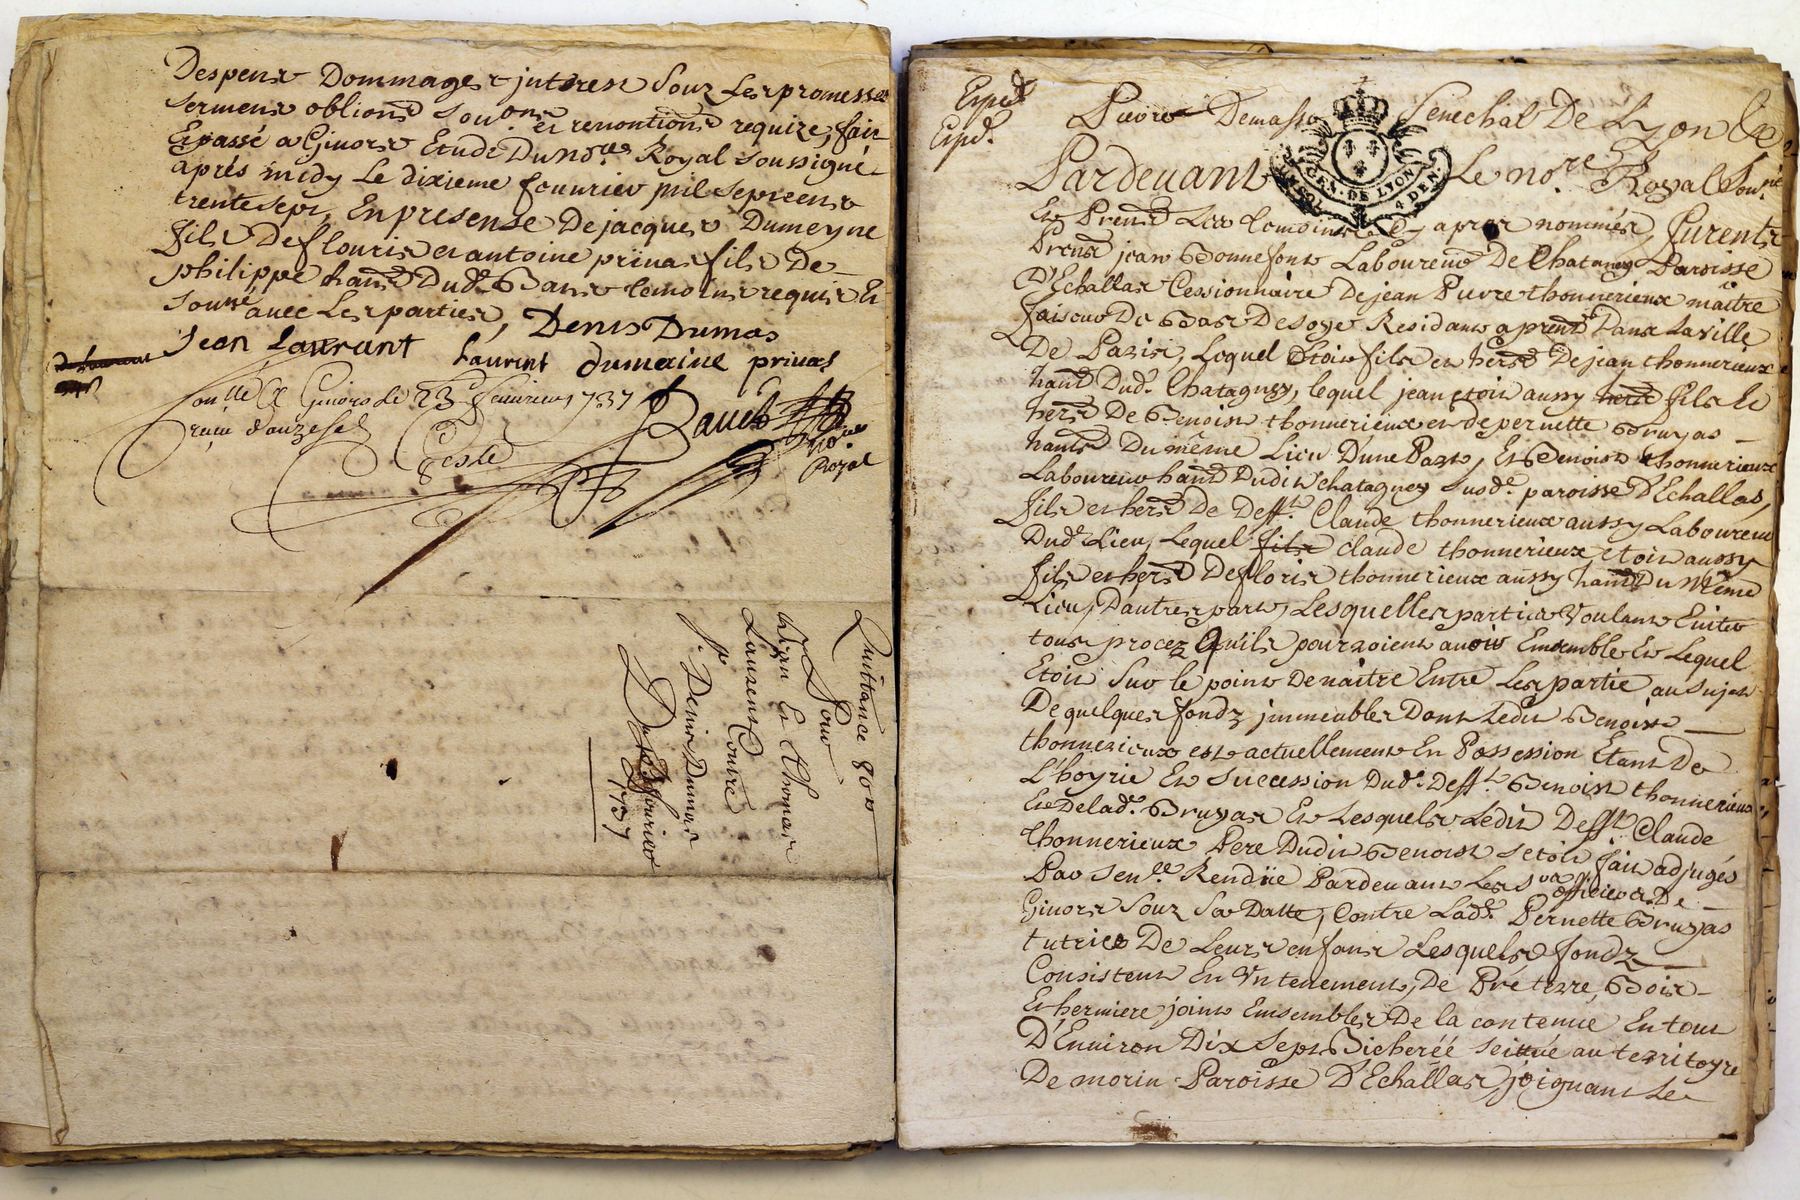 Despens Dommages jnterest Souz Les promesses
serment oblion.d Sou.ons et renontions requize, fait
Et passé a Givors Etude Du No.re Royal soussigné
aprés midy Le dixieme fevurier mil sept cent
trente sept, En presense De jacques Dumeyne
fils De flouris et antoine privas fils De
philippe han.d Dud. Bans temoins requis Et
Sou.né avec Les parties, Denis Dumas
Jean Laurant Laurent dumaine privas
Con.lle a Givors le 23 fevurier 1737
reçu douze sols
No.re
Royal
Quittance 80 #
Pour
Jean Et Thomas
Laurent Contre
S.r Denis Dumas
Du 10 fevurier
1737
Exped.
Exped.
Pierre Demasso Senechal De Lyon &c
GEN. DE LYON
4 DEN
Pardevant Le no.re Royal Sou.né
Et Presents Les temoins cy apres nommés, furent
Present jean Bonnefont Laboureur De Chatagney Paroisse
D'Echallas Cessionnaire De jean Pierre thonnerieux maître
faiseur De Bas De soye Residant a present Dans La ville
De Paris, Lequel Etoit fils et her.r De jean thonnerieux
han.t Dud. Chatagney, lequel jean etoit aussy her.r fils Et
her.r De Benoist thonnerieux et de pernette Bruyas
han.ts Du même Lieu D'une Part, Et Benoist thonnerieux
Laboureur han.t Dudit chatagney Susd.e paroisse D'Echallas,
fils et her.r De Deff.t Claude thonnerieux aussy Laboureur
Dud. Lieu, Lequel fils claude thonnerieux etoit aussy
fils et her.r De floris thonnerieux aussy han.t Du Même
Lieu, D'autres part, Lesquelles parties Voulant Eviter
tous procez Qu'ils pourroient avoir Ensemble Et Lequel
Etoit Sur le point De naître Entre Les partie au Sujet
De quelques fondz jmmeubles Dont Ledit Benoist
thonnerieux est actuellement En Possession Etant De
L'hoyrie Et Succession Dud. Deff.t Benoist thonnerieux
Et De lad. Bruyas Et Lesquels Ledit Deff.t Claude
thonnerieux Pere Dudit Benoist setoit fait adjugés
Par sen.ce Rendüe Pardevant Les S.rs officiers De
Givors Souz Sa Datte, Contre Lad. Pernette Bruyas
tutrice De Leurs enfans Lesquels fondz
Consistent En Un tenement, De Pré terre, Bois
Et hermiere joint Ensembles De la contenue En tout
D'Environ Dix Sept Bicheréé seittué au territoyre
De morin Paroisse D'Echallas, joignant Le